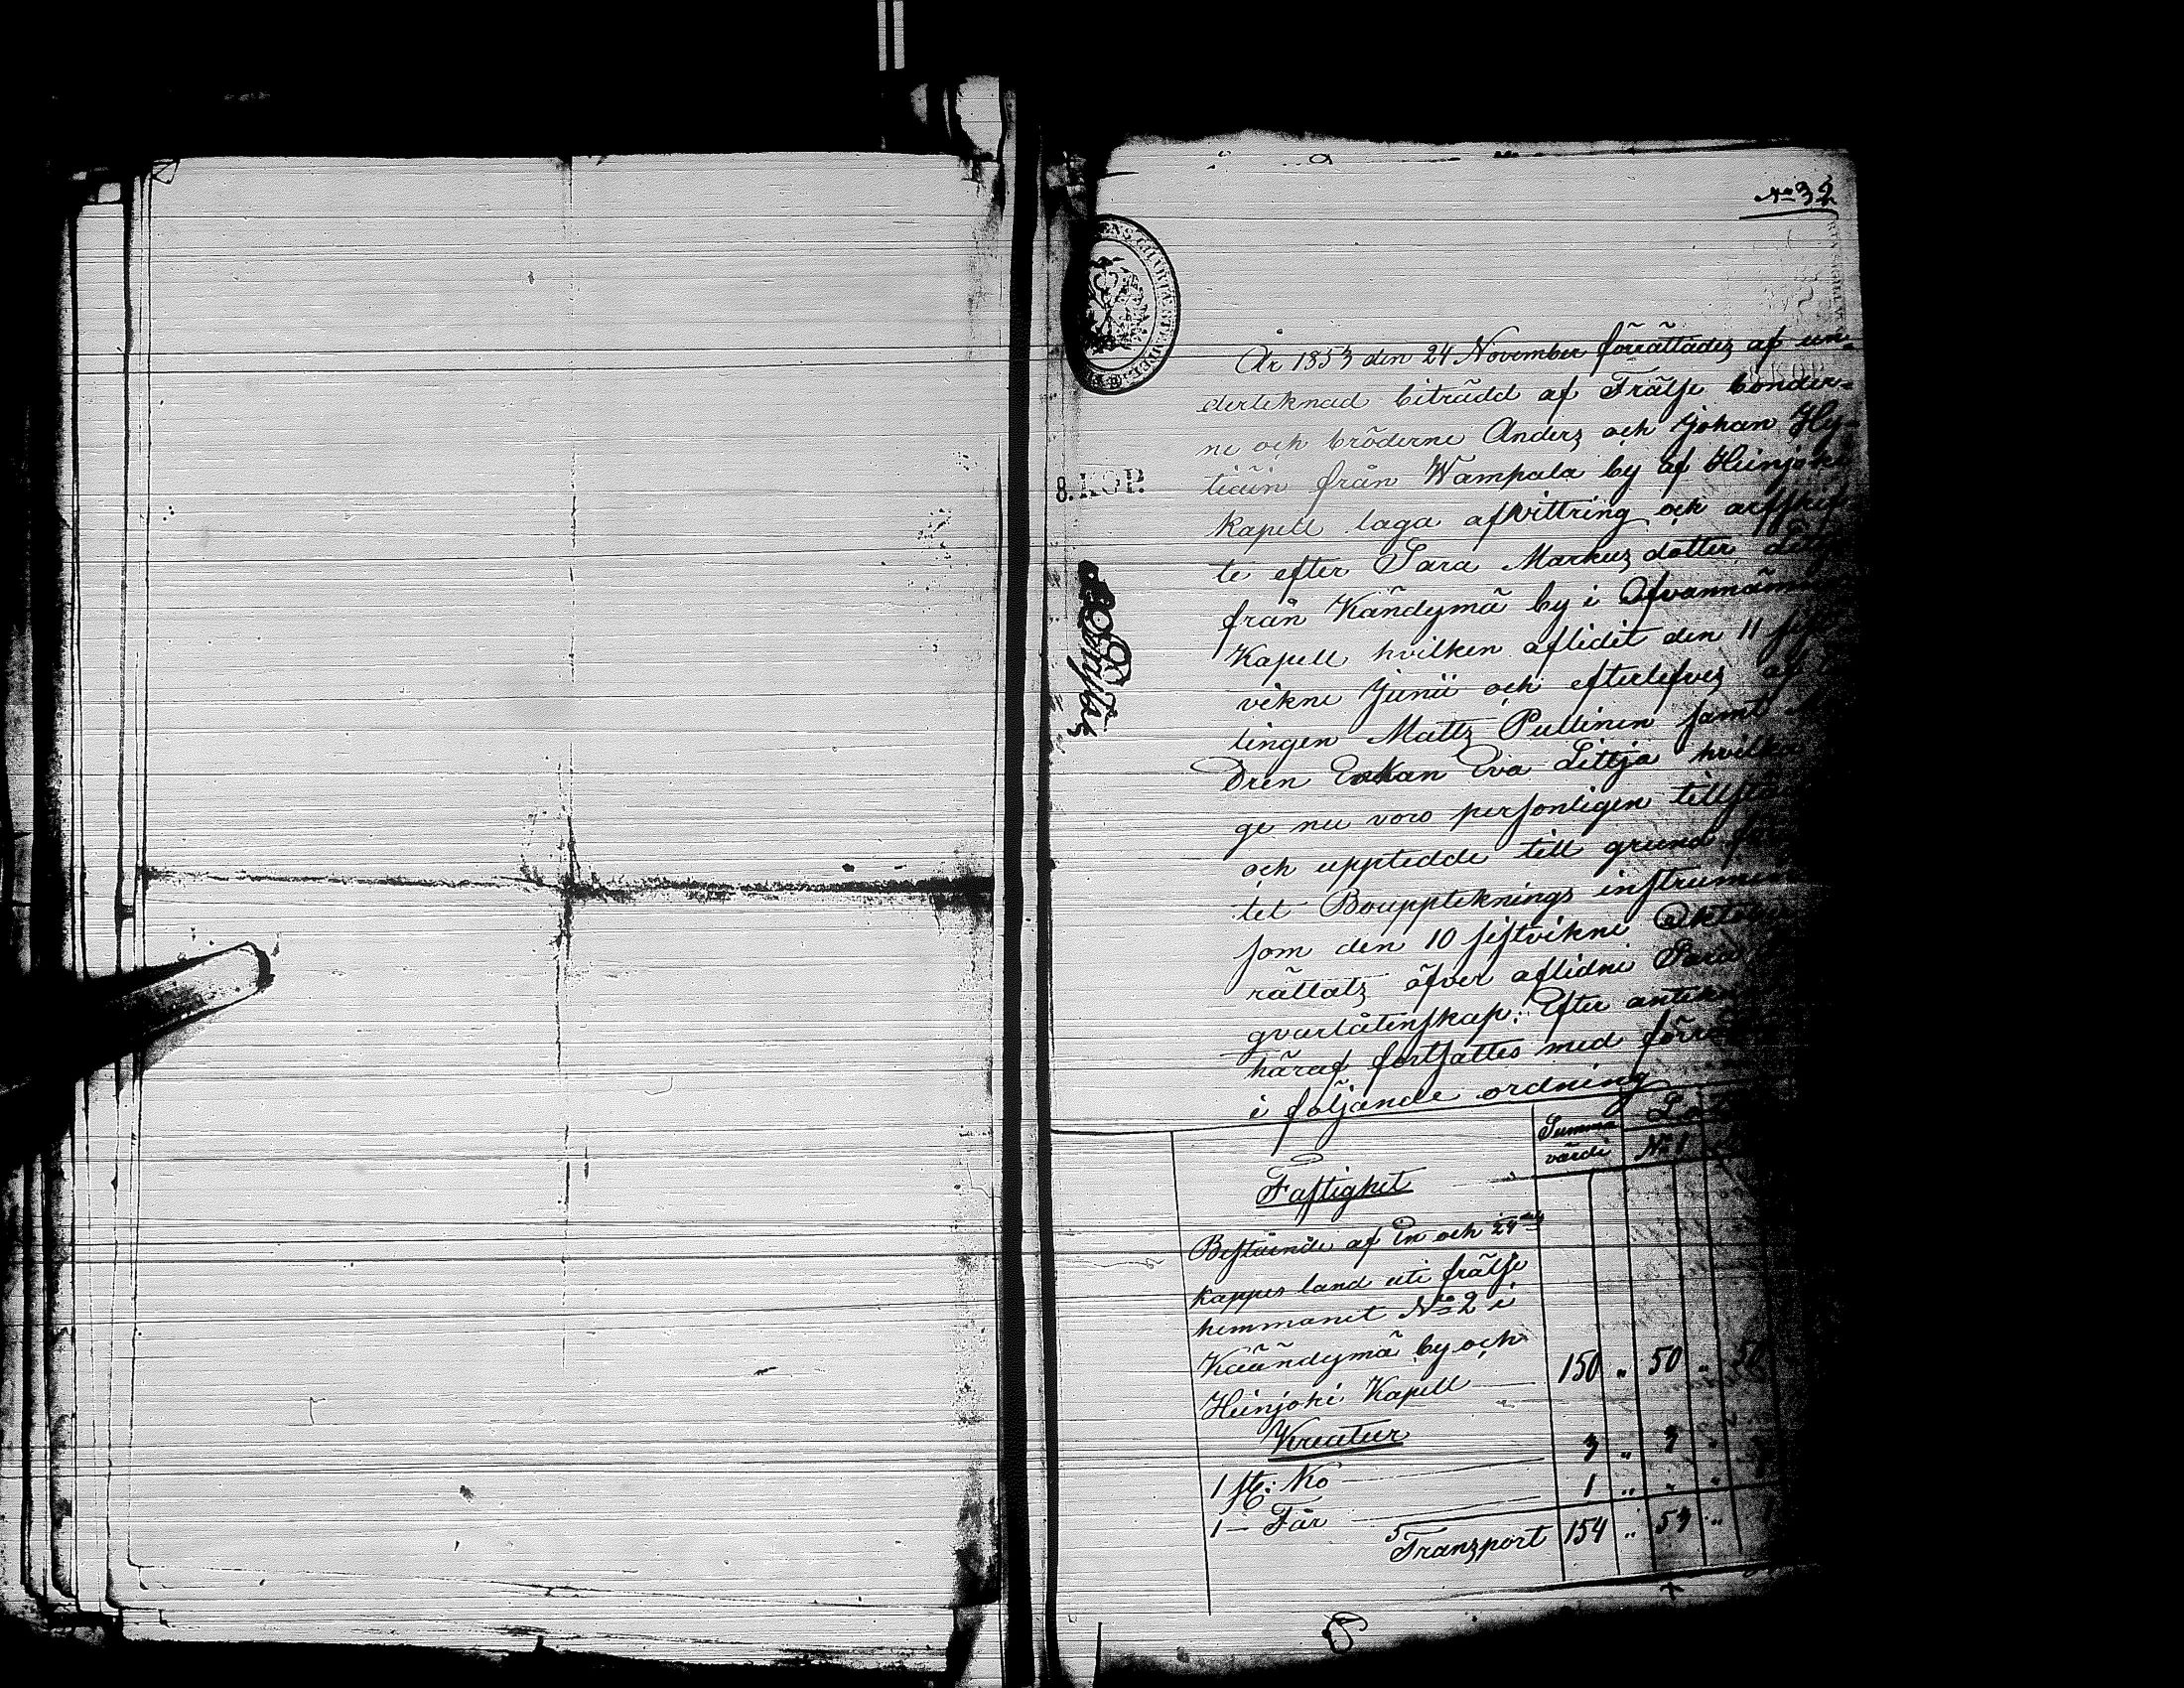 No 32
8. KOP.
År 1853 den 24 November förrättades af un-
derteknad biträdd af Frälse bönder-
ne och bröderne Anders och Johan Hy-
from Wampala by af Heinjoki
kapell laga afvittring och arfskif-
te efter Sara Markus dotter
från Kändymä by i Ofvannämnde
Kapell hvilken aflidit den 11 sist-
vikne Junii och efterlefves af
lingen Matts Pullinen samt
dren Enkan Eva Littja hvilka
ge nu voro personligen tillstädes
och upptedde till grund för
tet Bouppteknings instrument
som den 10 sistvikne Oktober
rättats öfver aflidne Sara
qvarlåtenskap. Efter antekning
häraf fortsattes med förrättningen
i följande ordning
Summa
värde
No 1
Fastighet
Bestående af En och
kappes land uti frälse
hemmanet No 2 i
Kaändymä by och
Heinjoki Kapell 150 " 50 " 50
Kreatur
1 st: Ko 3 " 3 "
1 — Får 1 " " "
Transport 154 " 53 "